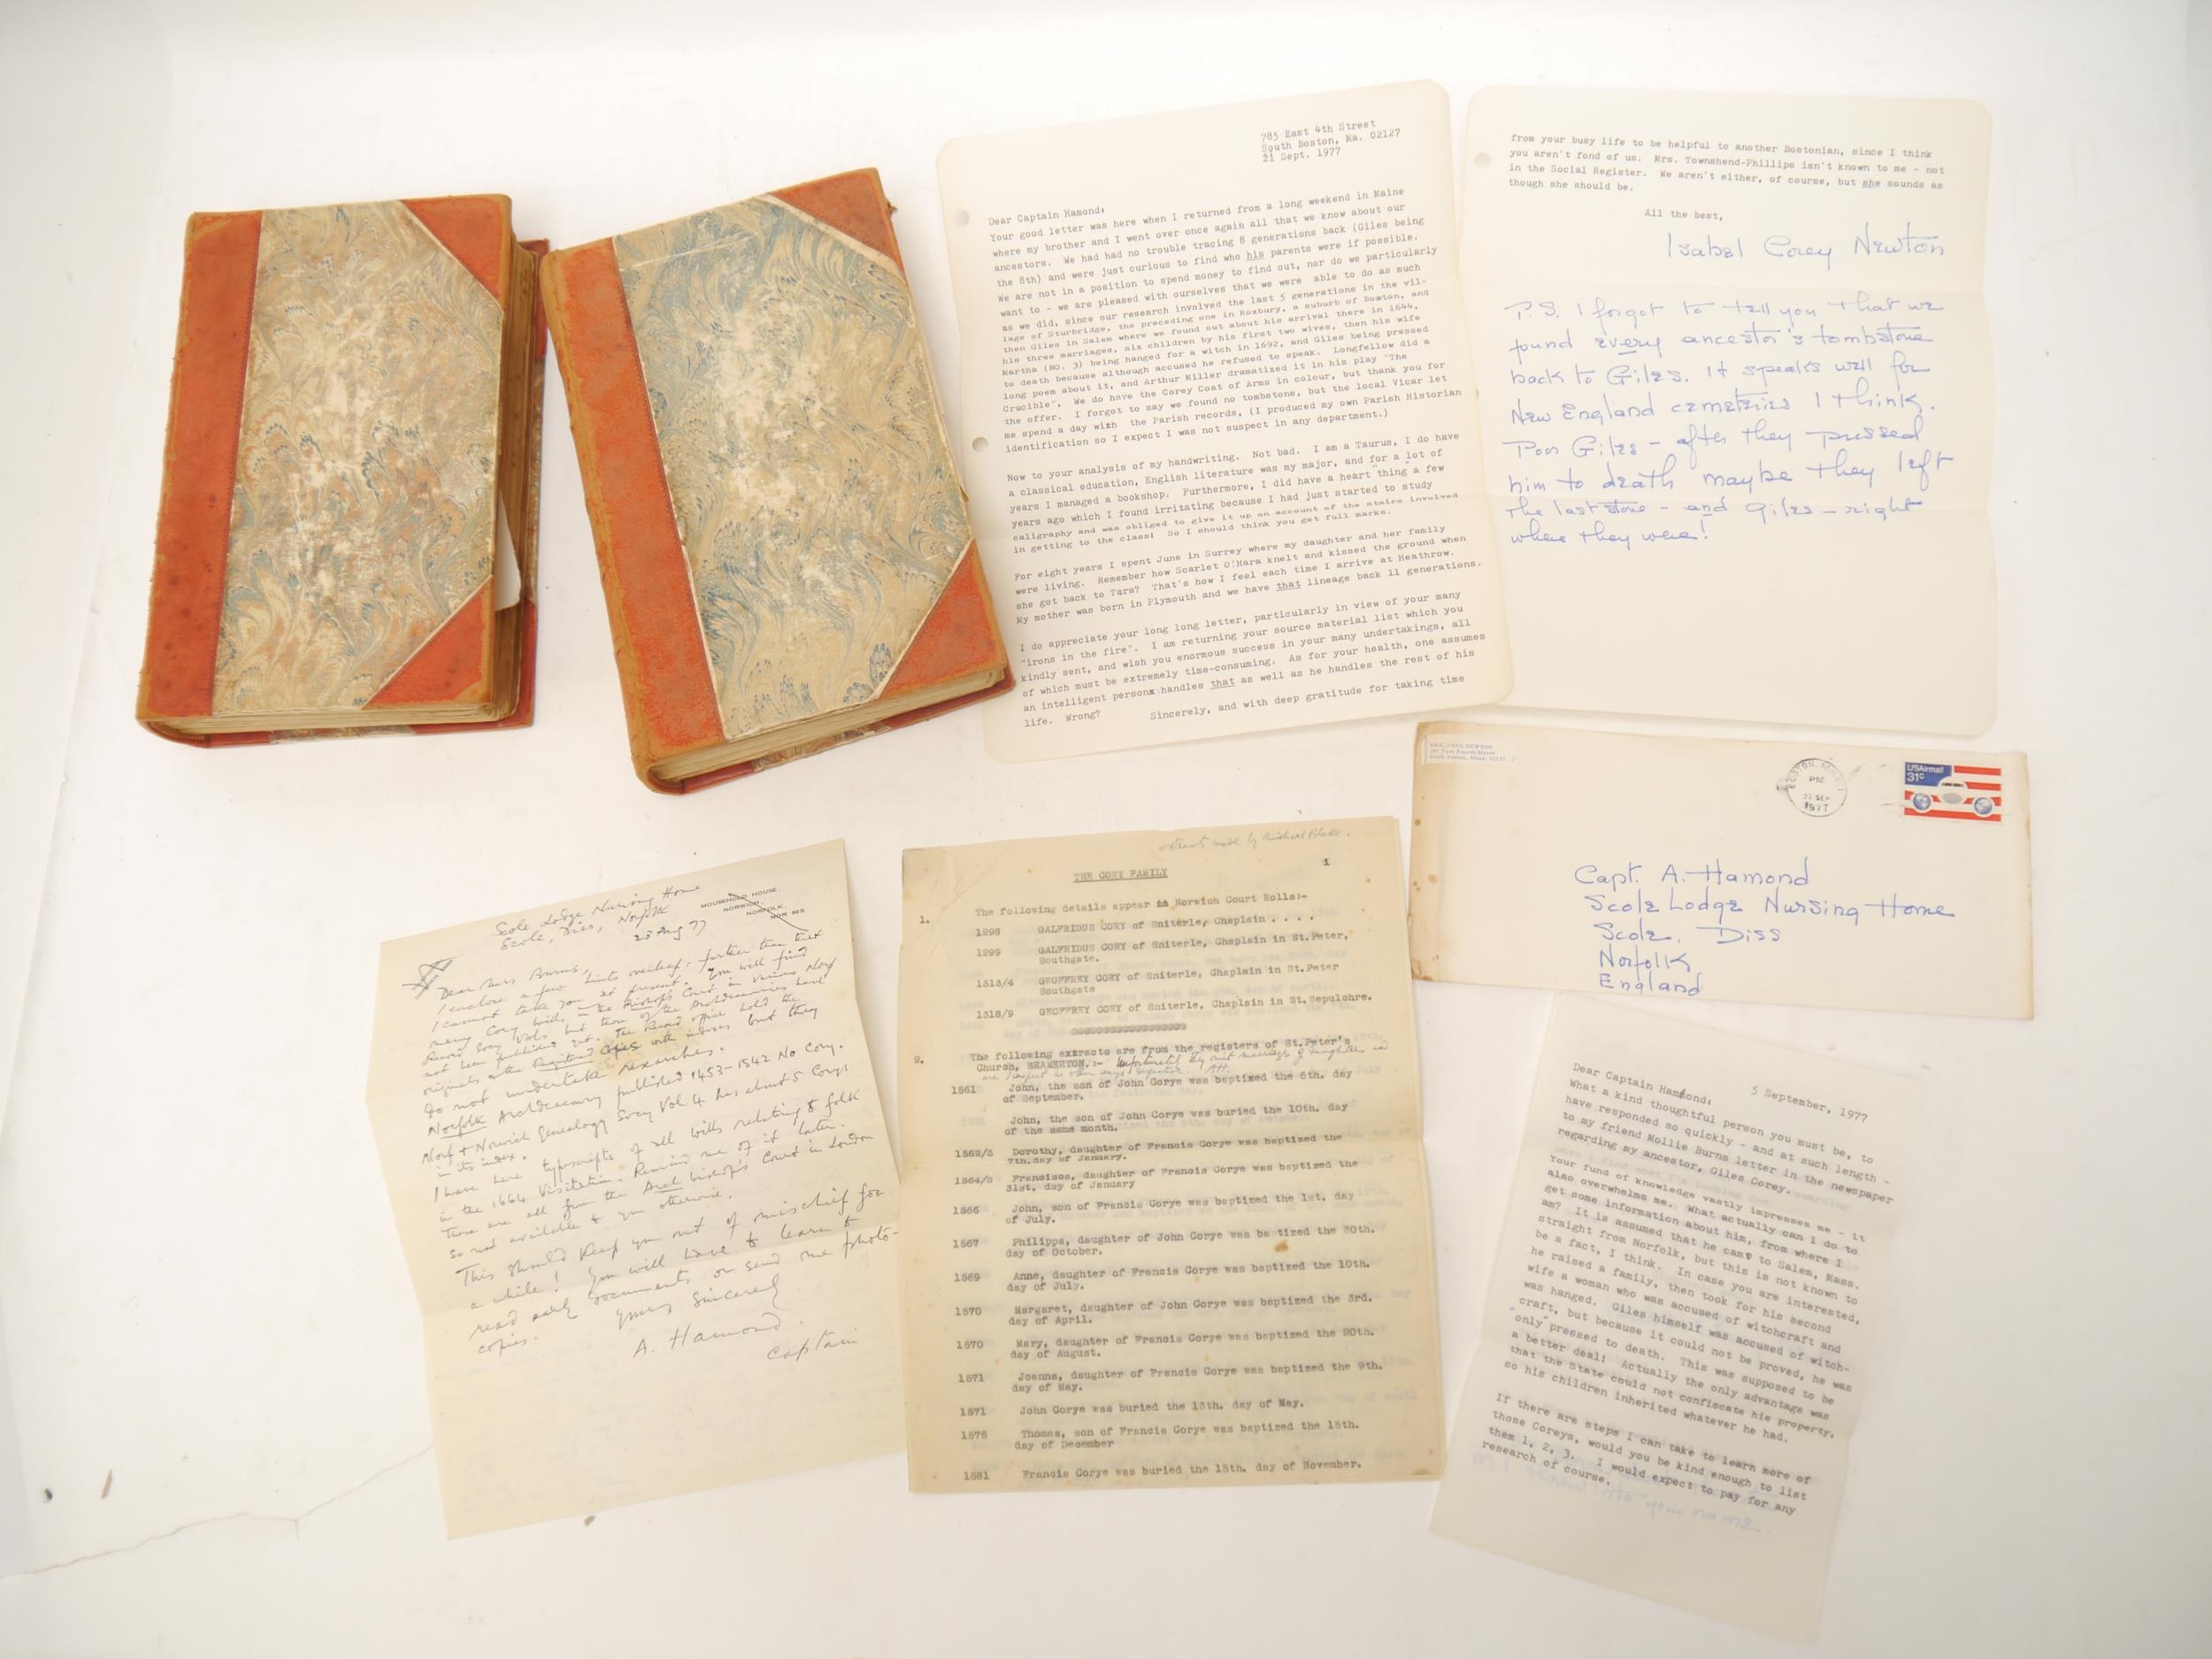 785 East 4th Street
South Boston, Ma. 02127
21 Sept. 1977
Dear Captain Hamond:
Your good letter was here when I returned from a long weekend in Maine
where my brother and I went over once again all that we know about our
ancestors. We had had no trouble tracing 8 generations back (Giles being
the 8th) and were just curious to find who his parents were if possible.
We are not in a position to spend money to find out, nor do we particularly
want to - we are pleased with ourselves that we were able to do as much
as we did, since our research involved the last 5 generations in the vil-
lage of Sturbridge, the preceding one in Roxbury, a suburb of Boston, and
then Giles in Salem where we found out about his arrival there in 1644,
his three marriages, six children by his first two wives, then his wife
Martha (NO. 3) being hanged for a witch in 1692, and Giles being pressed
to death because although accused he refused to speak. Longfellow did a
long poem about it, and Arthur Miller dramatized it in his play "The
Crucible". We do have the Corey Coat of Arms in colour, but thank you for
the offer. I forgot to say we found no tombstone, but the local Vicar let
me spend a day with the Parish records, (I produced my own Parish Historian
identification so I expect I was not suspect in any department.)
Now to your analysis of my handwriting. Not bad. I am a Taurus, I do have
a classical education, English literature was my major, and for a lot of
years I managed a bookshop. Furthermore, I did have a heart "thing" a few
years ago which I found irrizating because I had just started to study
caligraphy and was obliged to give it up on account of the stairs involved
in getting to the class! So I should think you get full marks.
For eight years I spent June in Surrey where my daughter and her family
were living. Remember how Scarlet O'Hara knelt and kissed the ground when
she got back to Tara? That's how I feel each time I arrive at Heathrow.
My mother was born in Plymouth and we have that lineage back 11 generations.
I do appreciate your long long letter, particularly in view of your many
"irons in the fire". I am returning your source material list which you
kindly sent, and wish you enormous success in your many undertakings, all
of which must be extremely time-consuming. As for your health, one assumes
an intelligent person handles that as well as he handles the rest of his
life. Wrong? Sincerely, and with deep gratitude for taking time
from your busy life to be helpful to another Bostonian, since I think
you aren't fond of us. Mrs. Townshend-Phillips isn't known to me - not
in the Social Register. We aren't either, of course, but she sounds as
though she should be.
All the best,
Isabel Corey Newton
P.S. I forgot to tell you that we
found every ancestor's tombstone
back to Giles. It speaks well for
New England cemeteries I think.
Poor Giles - after they pressed
him to death maybe they left
the last stone - and Giles - right
where they were!
MRS. PAUL NEWTON
BOSTON, MA
PM
22 SEP
1977
USAirmail
31c
Capt. A. Hamond
Scole Lodge Nursing Home
Scole, Diss
Norfolk
England
MOUSEHOLD HOUSE,
NORWICH,
NORFOLK.
Scole Lodge Nursing Home
Scole, Diss, Norfolk
23 Aug 77
Dear Mrs Burns,
I enclose a few hints overleaf: further than that
I cannot take you at present. You will find
many Cory wills in the Bishop's Court in various Norf
Record Socy Vols. but those of the Archdeaconries have
not been published yet. The Record office hold the
originals & the Registered Copies with indexes but they
do not undertake researches.
Norfolk Archdeaconry published 1453-1542 No Cory.
Norf & Norwich Genealogy Socy Vol 4 has about 5 Corys
in its index.
I have here typescripts of all wills relating to folk
in the 1664 Visitation. Remind me of it later.
These are all from the Archbishop's Court in London
so not available to you otherwise.
This should keep you out of mischief for
a while! You will have to learn to
read early documents or send me photo-
copies. Yours sincerely
A. Hamond.
Captain
extracts made by Michael Blake.
1
THE CORY FAMILY
1. The following details appear in Norwich Court Rolls:-
1298 GALFRIDUS CORY of Sniterle, Chaplain . . . .
1299 GALFRIDUS CORY of Sniterle, Chaplain in St.Peter,
Southgate.
1313/4 GEOFFREY CORY of Sniterle, Chaplain in St.Peter
Southgate
1318/9 GEOFFREY CORY of Sniterle, Chaplain in St.Sepulchre.
2. The following extracts are from the registers of St.Peter's
Church, BRAMERTON. :- Unfortunately they omit marriages of daughters and
AH.
1561 John, the son of John Corye was baptized the 6th. day
of September.
John, the son of John Corye was buried the 10th. day
of the same month.
1562/3 Dorothy, daughter of Francis Corye was baptized the
7th.day of January.
1564/5 Francisca, daughter of Francis Corye was baptized the
31st. day of January
1566 John, son of Francis Corye was baptized the 1st. day
of July.
1567 Philippa, daughter of John Corye was baptized the 30th.
day of October.
1569 Anne, daughter of Francis Corye was baptized the 10th.
day of July.
1570 Margaret, daughter of John Corye was baptized the 3rd.
day of April.
1570 Mary, daughter of Francis Corye was baptized the 20th.
day of August.
1571 Joanna, daughter of Francis Corye was baptized the 9th.
day of May.
1571 John Corye was buried the 13th. day of May.
1576 Thomas, son of Francis Corye was baptized the 15th.
day of December
1581 Francis Corye was buried the 15th. day of November.
5 September, 1977
Dear Captain Hamond:
What a kind thoughtful person you must be, to
have responded so quickly - and at such length -
to my friend Mollie Burns letter in the newspaper
regarding my ancestor, Giles Corey.
Your fund of knowledge vastly impresses me - it
also overwhelms me. What actually can I do to
get some information about him, from where I
am? It is assumed that he came to Salem, Mass.
straight from Norfolk, but this is not known to
be a fact, I think. In case you are interested,
he raised a family, then took for his second
wife a woman who was accused of witchcraft and
was hanged. Giles himself was accused of witch-
craft, but because it could not be proved, he was
only "pressed to death. This was supposed to be
a better deal! Actually the only advantage was
that the State could not confiscate his property,
so his children inherited whatever he had.
If there are steps I can take to learn more of
those Coreys, would you be kind enough to list
them 1, 2, 3. I would expect to pay for any
research of course.